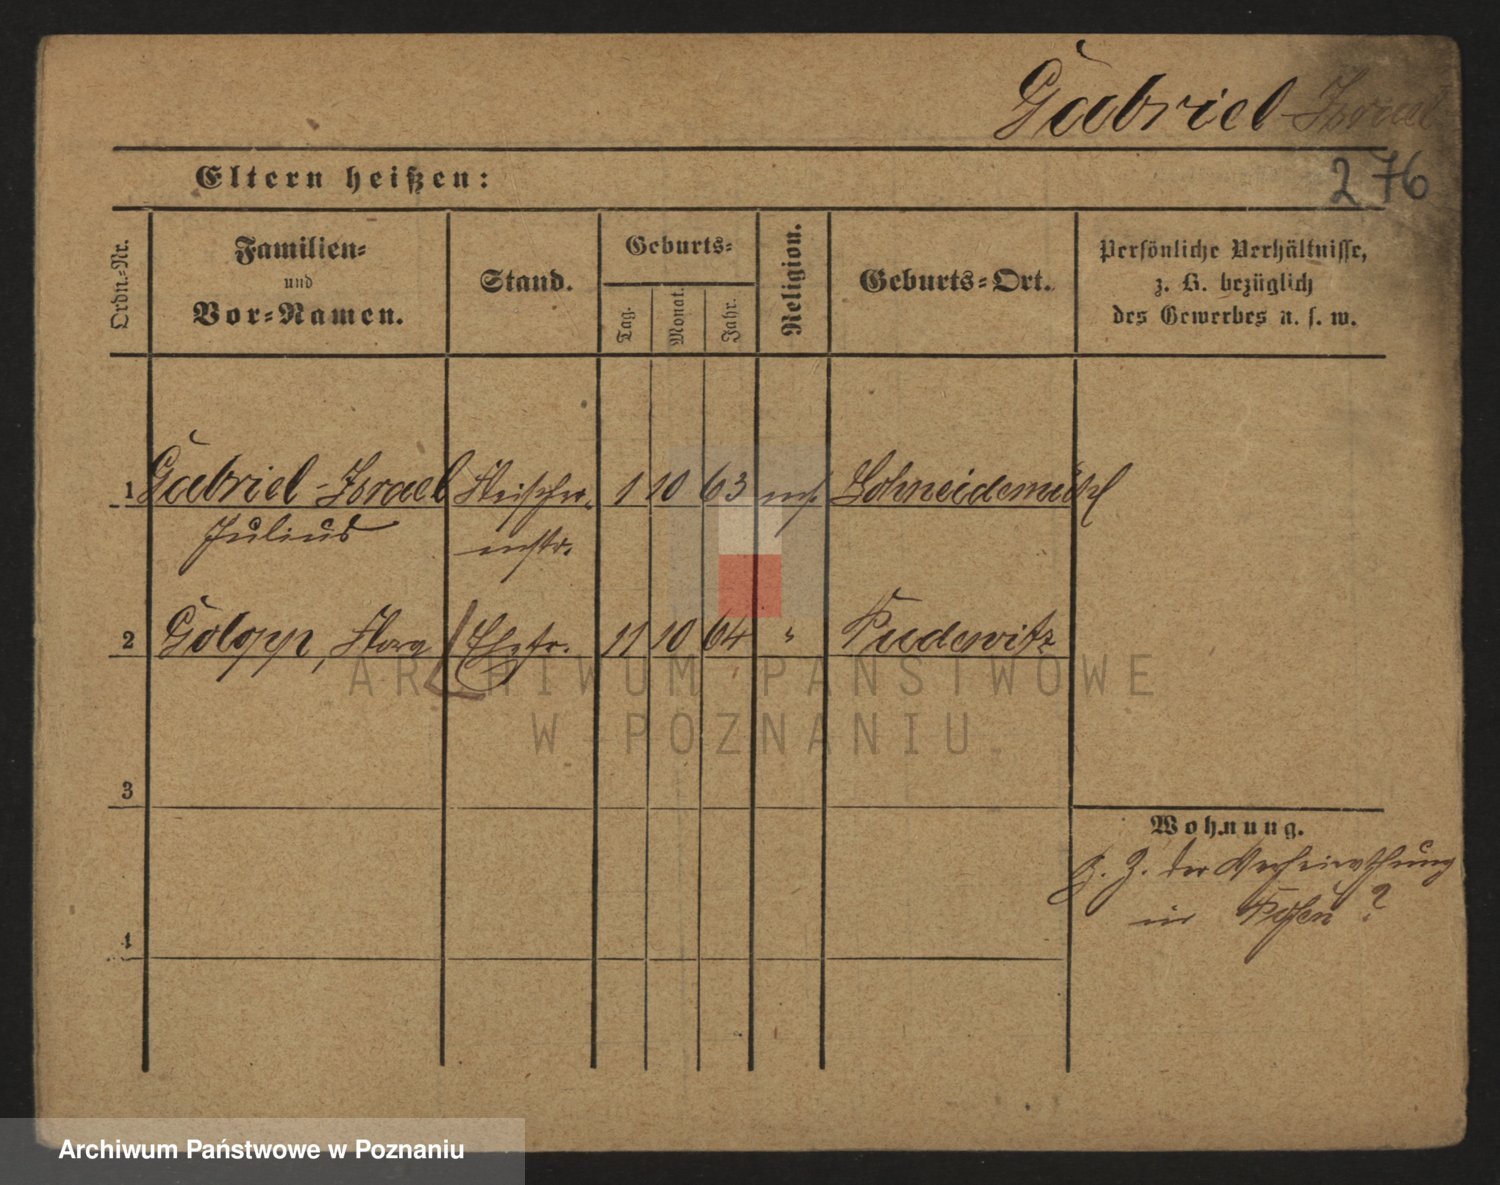 Gabriel-Israel
276
Eltern heißen:
Ordn.-Nr.
Familien-
und
Vor-Namen.
Stand.
Geburts-
Tag.
Monat.
Jahr.
Religion.
Geburts-Ort.
Persönliche Verhältnisse,
z. B. bezüglich
des Gewerbes u. s. w.
1 Gabriel-Israel Fleischer- 1 10 63 Schneidemühl
Julius mstr.
2 Flora 11 10 64 " Pudewitz
3
Wohnung.
z. Z. der Verheirathung
in Posen ?
4
ARCHIWUM PAŃSTWOWE
W POZNANIU
Archiwum Państwowe w Poznaniu